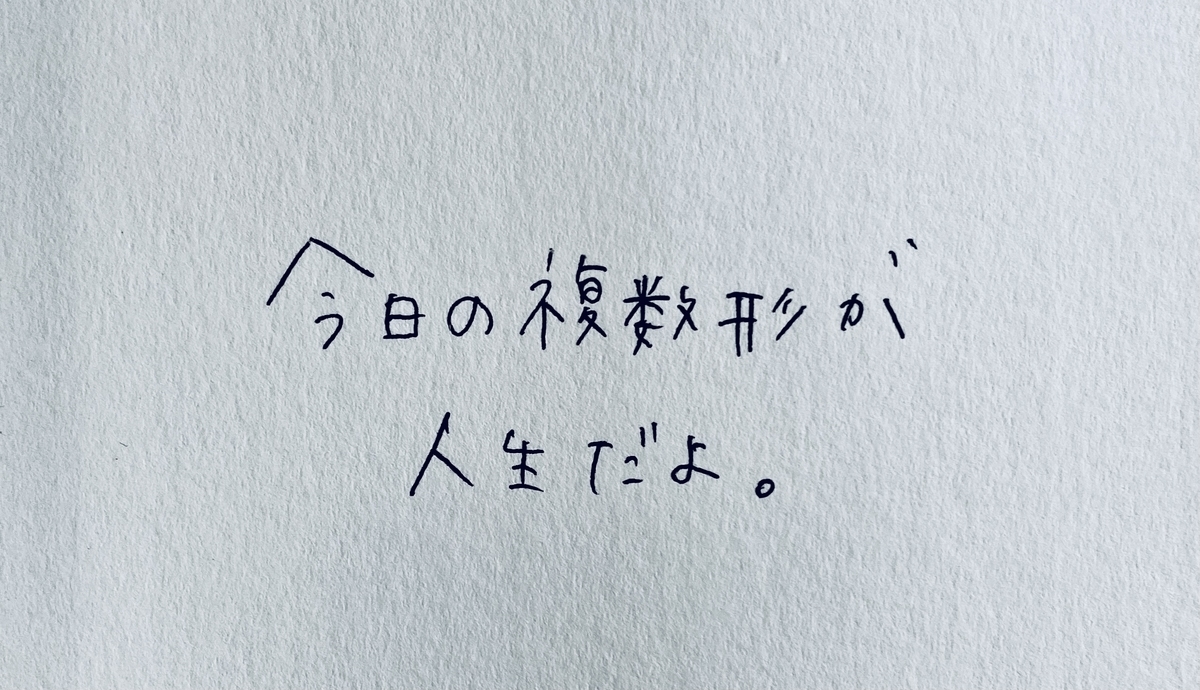 今日の複数形が
人生だよ。